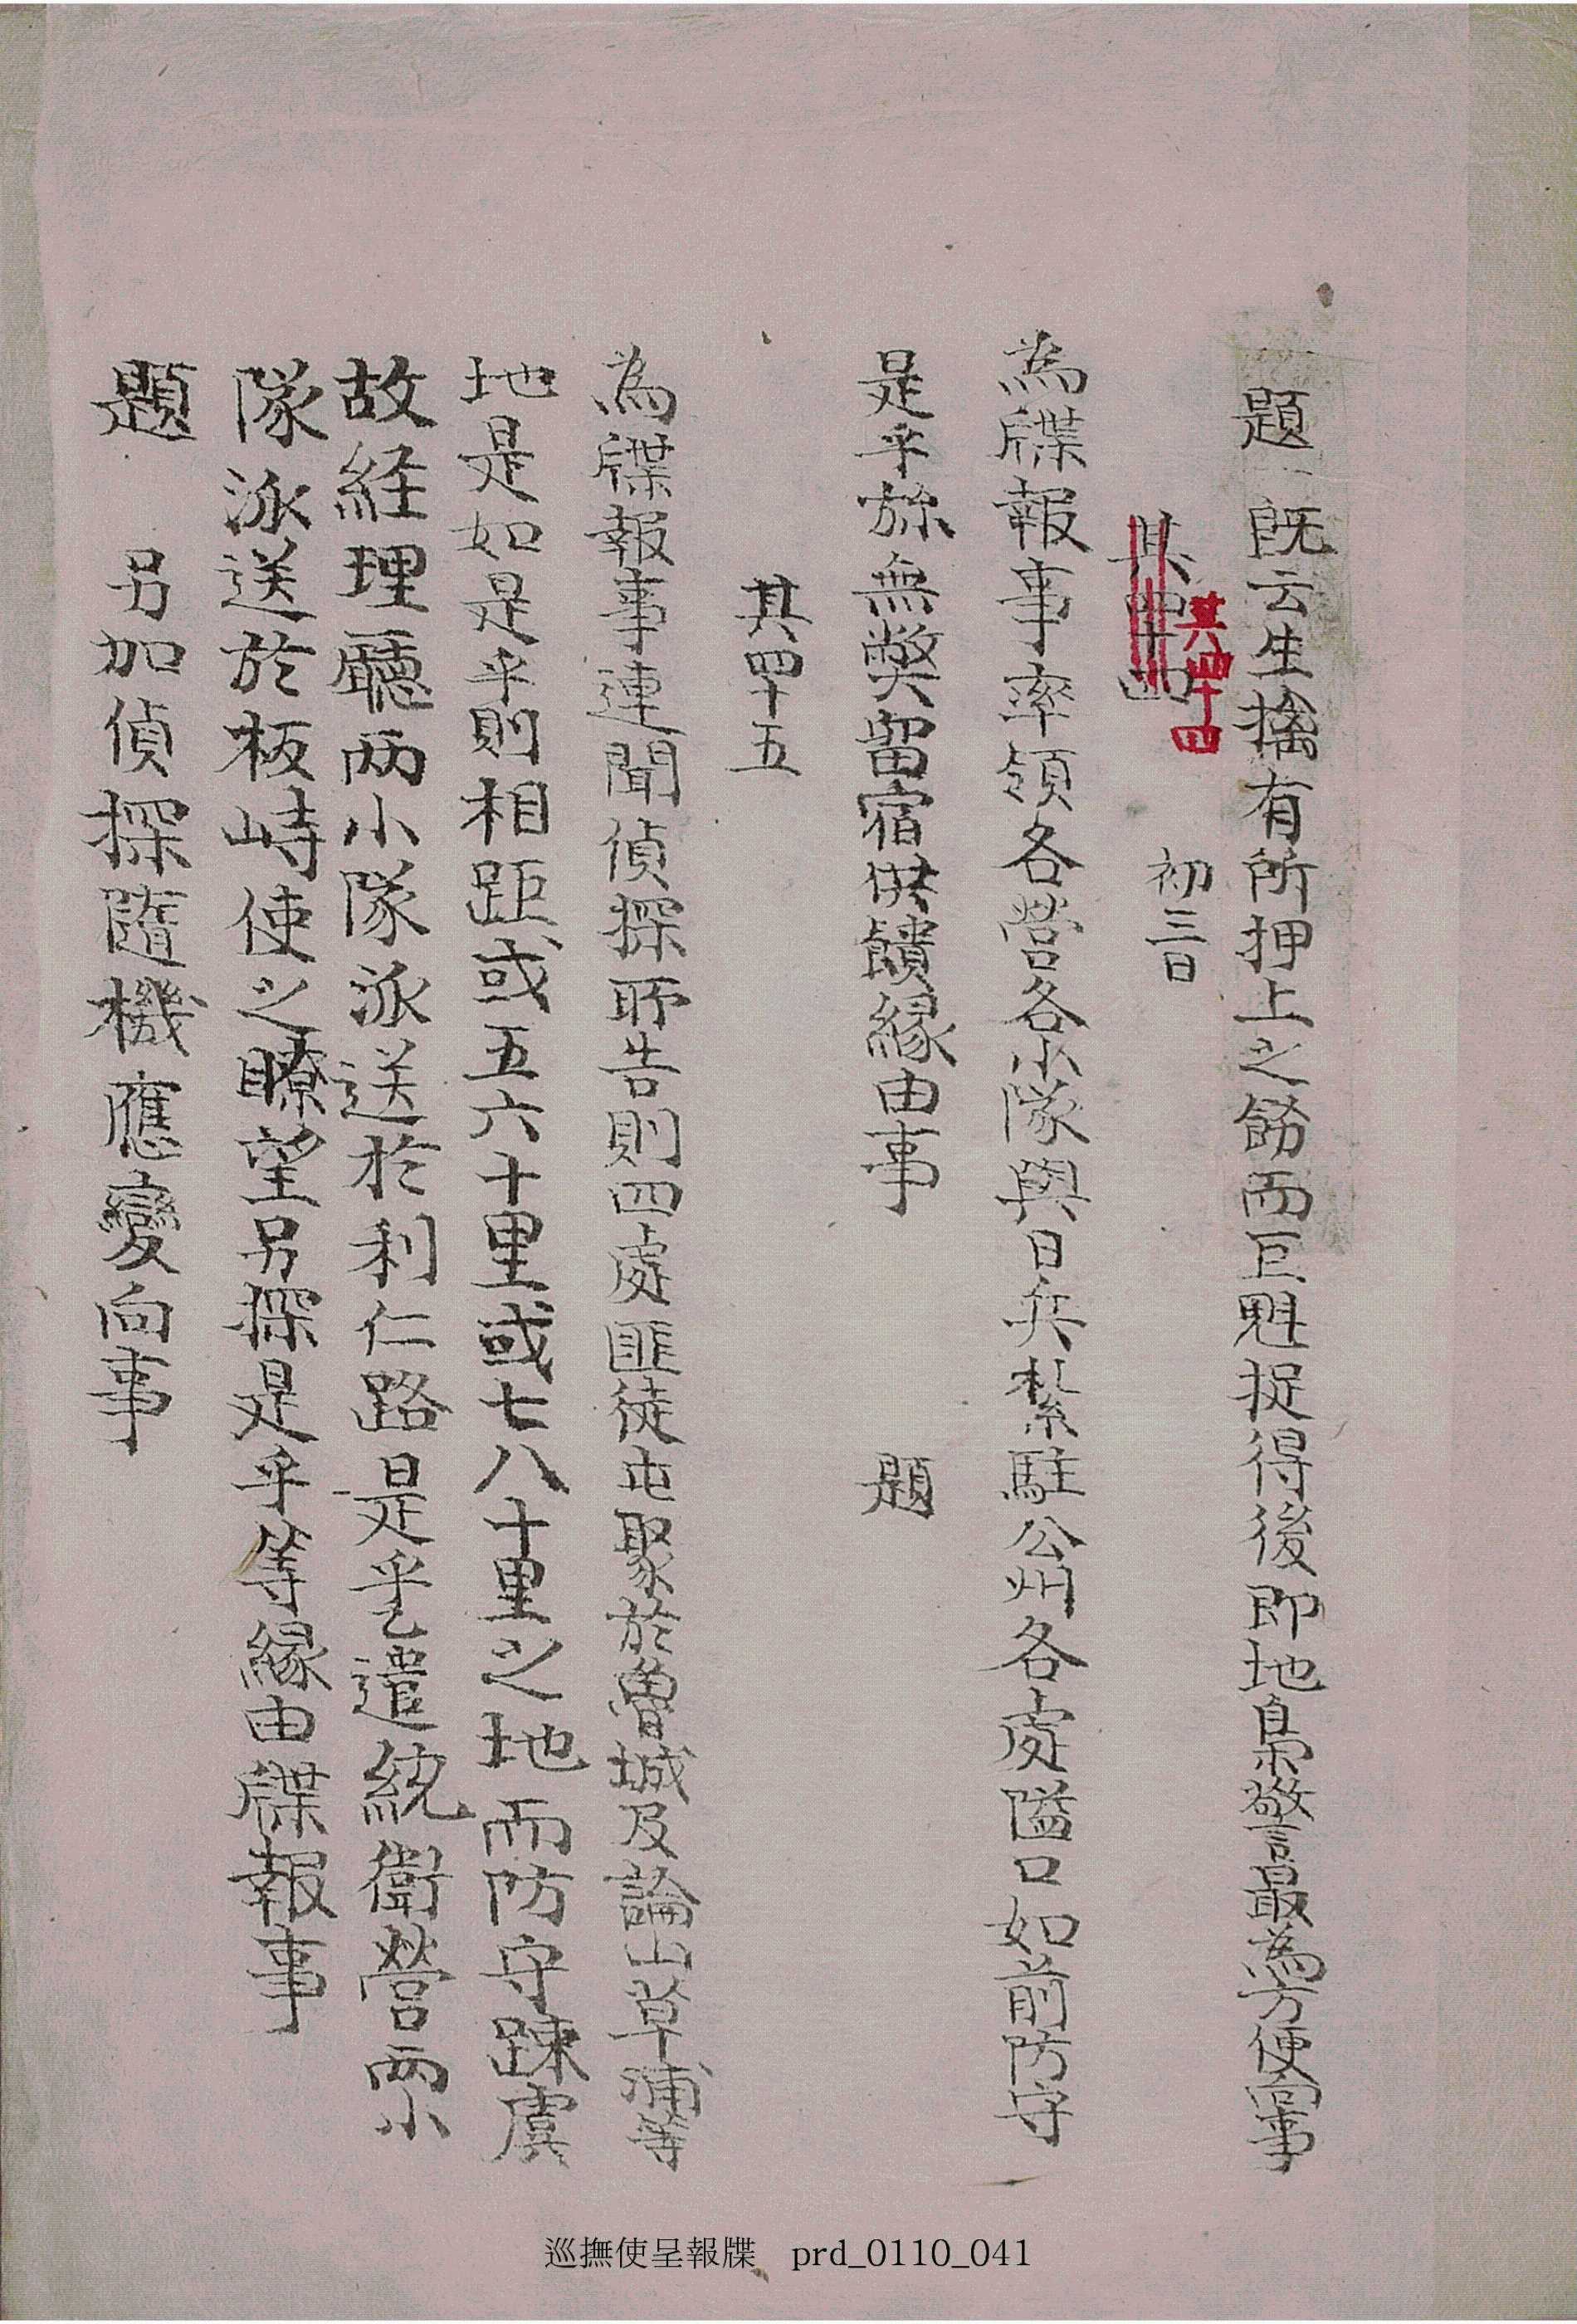 題 既云生擒有所押上之飭而巨魁捉得後即地梟警最為方便向事
其四十四 其四十四 初三日
為牒報事率領各營各小隊與日兵紮駐公州各處隘口如前防守
是乎旀無獘留宿供饋緣由事 題
其四十五
為牒報事連聞偵探所告則四處匪徒屯聚於魯城及論山草浦等
地是如是乎則相距或五六十里或七八十里之地而防守踈虞
故経理廳两小隊派送於利仁路是乎乙遣統衛營两小
隊派送於板峙使之瞭望另探是乎等緣由牒報事
題 另加偵探隨機應變向事
巡撫使呈報牒 prd_0110_041